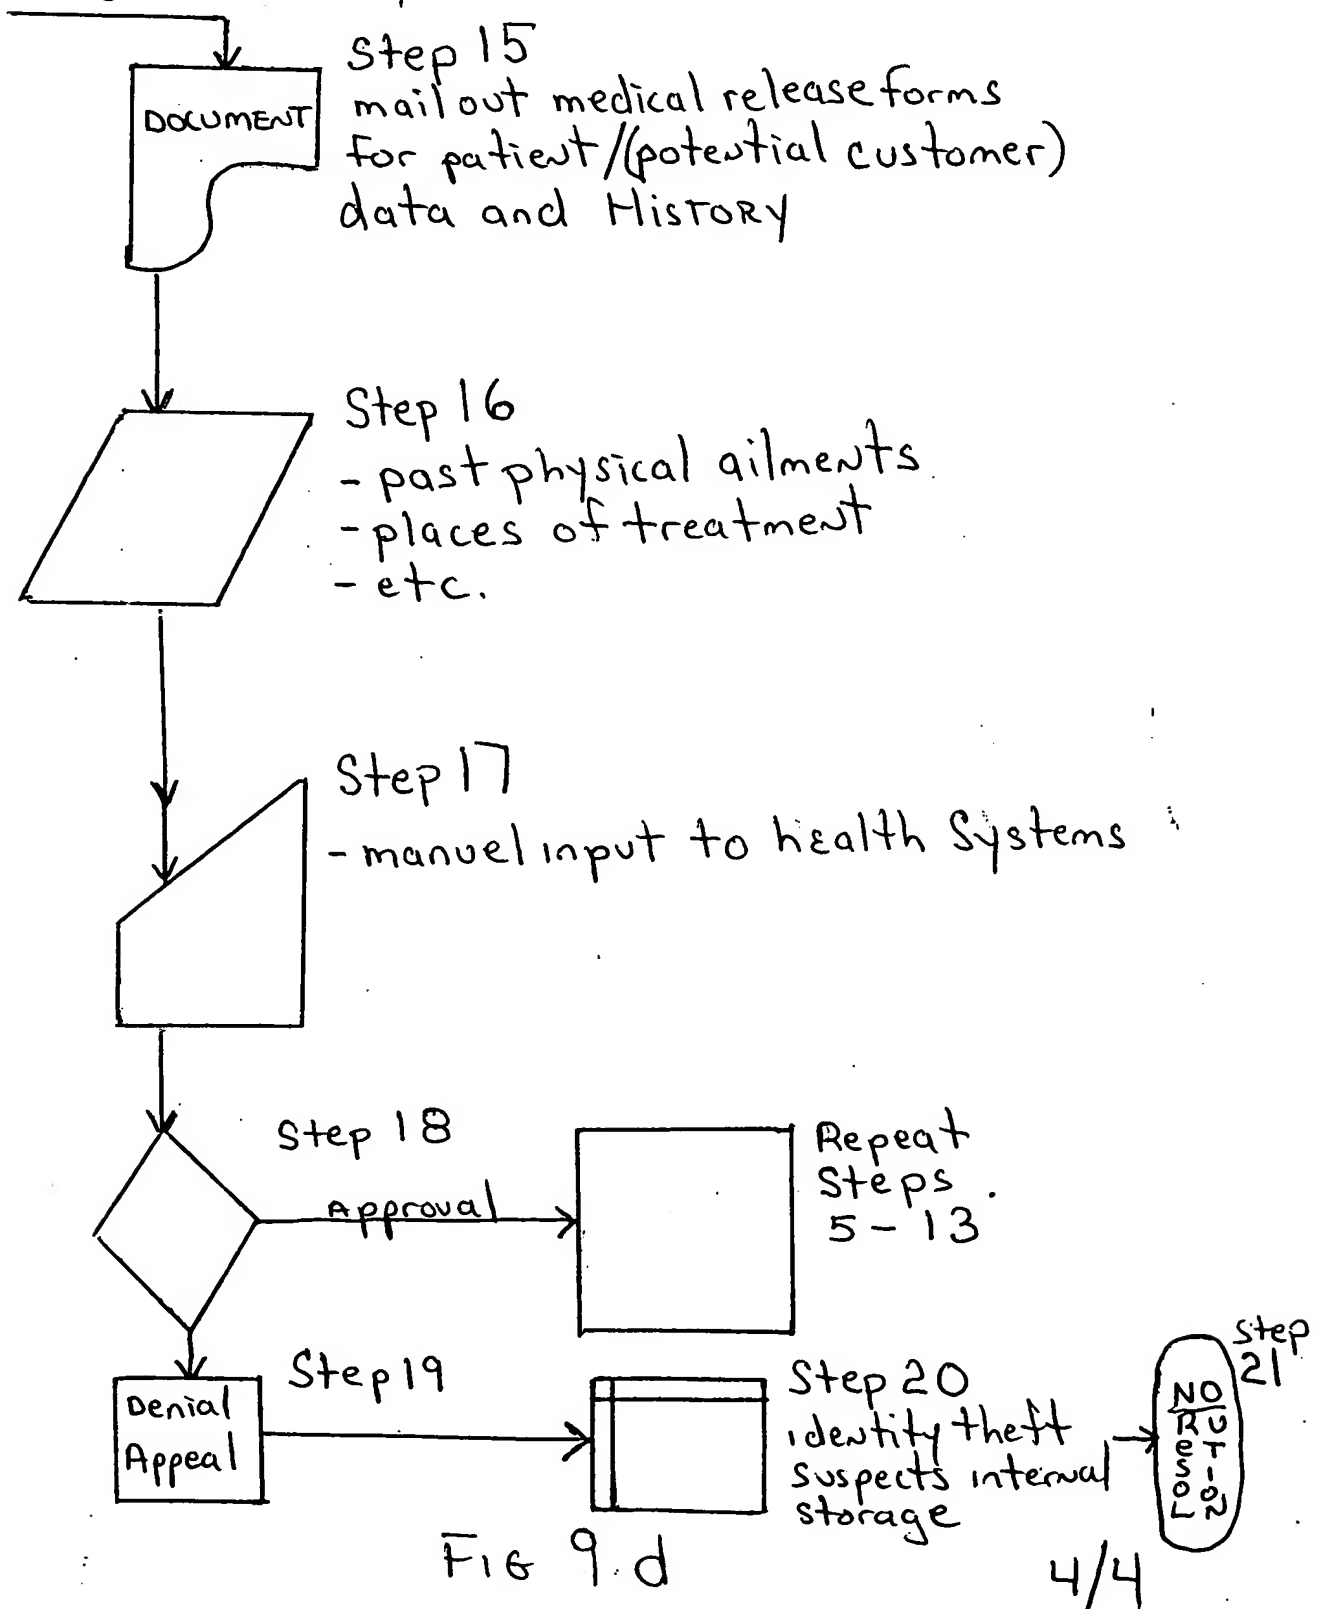 Step 15
DOCUMENT
mail out medical release forms
for patient/(potential customer)
data and HISTORY
Step 16
- past physical ailments
- places of treatment
- etc.
Step 17
- manuel input to health Systems
Step 18
Approval
Repeat
Steps
5 - 13
Step 19
Denial
Appeal
Step 20
identity theft
suspects internal
storage
Step
21
NO
ResoL
UTION
FIG 9.d
4/4